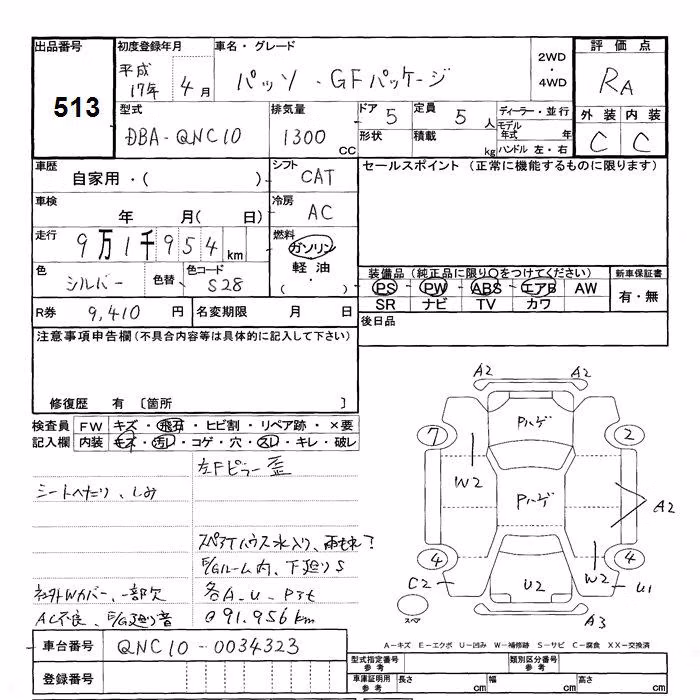 出品番号
513
初度登録年月
平成
17年 4月
車名・グレード
パッソ ・GFパッケージ
2WD
・
4WD
評価点
RA
外装 内装
C C
型式
DBA-QNC10
排気量
1300
CC
ドア 5
定員 5 人
形状
積載 kg
ディーラー・並行
モデル年式 年
ハンドル 左・右
車歴
自家用・( )
シフト
CAT
セールスポイント (正常に機能するものに限ります)
車検
年 月( 日)
冷房
AC
走行
9万1千954km
燃料
ガソリン
軽油
( ・ )
色
シルバー
色替
色コード
S28
装備品 (純正品に限り〇をつけてください)
PS PW ABS エアB AW
SR ナビ TV カワ
新車保証書
有・無
R券 9,410 円
名変期限 月 日
後日品
注意事項申告欄(不具合内容等は具体的に記入して下さい)
修復歴 有 〔箇所 〕
検査員
記入欄
FW キズ・飛石・ヒビ割・リペア跡・×要
内装 キズ・汚レ・コゲ・穴・スレ・キレ・破レ
左Fピラー歪
シートヘタリ、しみ
スペアTハウス水入り、雨もれ?
E/Gルーム内、下廻りS
社外Wカバー、一部欠
各A.U.Pヨt
AC不良、E/G廻り音
@91.956km
車台番号 QNC10-0034323
登録番号
A2 A2
Pハゲ
7 2
W2
Pハゲ
A2
4 4
C2 U2 W2 U1
スペア
A3
A-キズ E-エクボ U-凹み W-補修跡 S-サビ C-腐食 XX-交換済
型式指定番号
参考
類別区分番号
参考
車庫証明用
参考
長さ cm
幅 cm
高さ cm